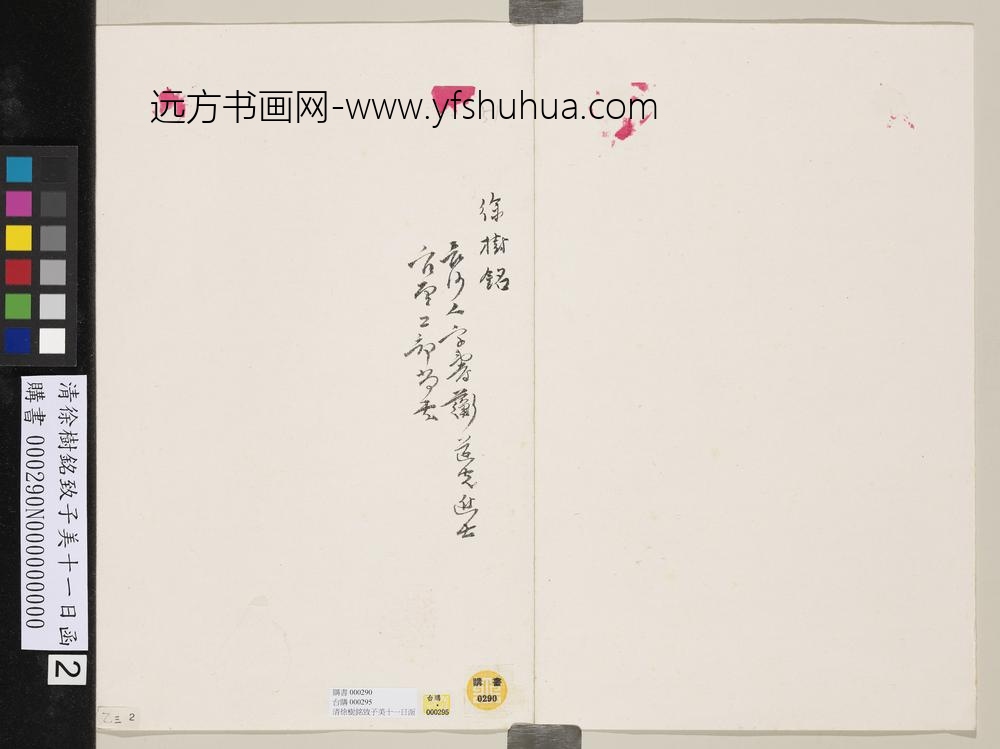 远方书画网-www.yfshuhua.com
徐樹銘
長沙人字壽蘅 道光進士
官至工部尚書
清徐樹銘致子美十一日函
購書 000290N000000000
2
購書 000290
台購 000295
清徐樹銘致子美十一日函
台購
000295
購書
0290
乙三 2